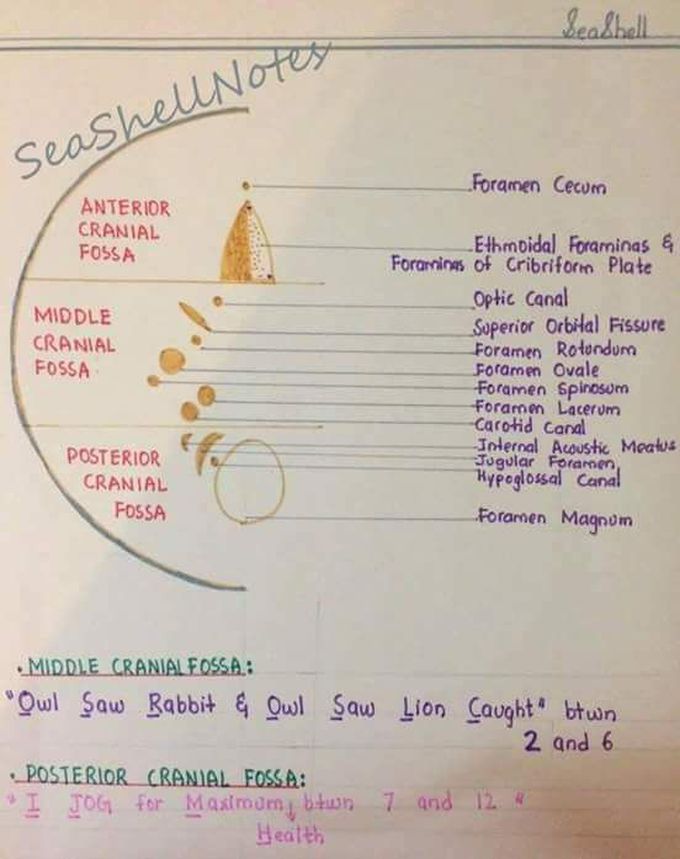 SeaShell
SeaShellNotes
Foramen Cecum
ANTERIOR
CRANIAL
FOSSA
Ethmoidal Foraminas &
Foraminas of Cribriform Plate
Optic Canal
MIDDLE
CRANIAL
FOSSA
Superior Orbital Fissure
Foramen Rotundum
Foramen Ovale
Foramen Spinosum
Foramen Lacerum
Carotid Canal
POSTERIOR
CRANIAL
FOSSA
Internal Acoustic Meatus
Jugular Foramen
Hypoglossal Canal
Foramen Magnum
• MIDDLE CRANIAL FOSSA:
"Owl Saw Rabbit & Owl Saw Lion Caught" btwn
2 and 6
• POSTERIOR CRANIAL FOSSA:
"I JOG for Maximum btwn 7 and 12"
Health